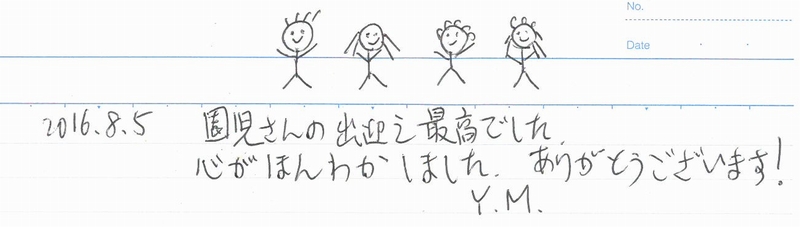 No.
Date
2016.8.5 園児さんの出迎え最高でした.
心がほんわかしました. ありがとうございます!
Y.M.